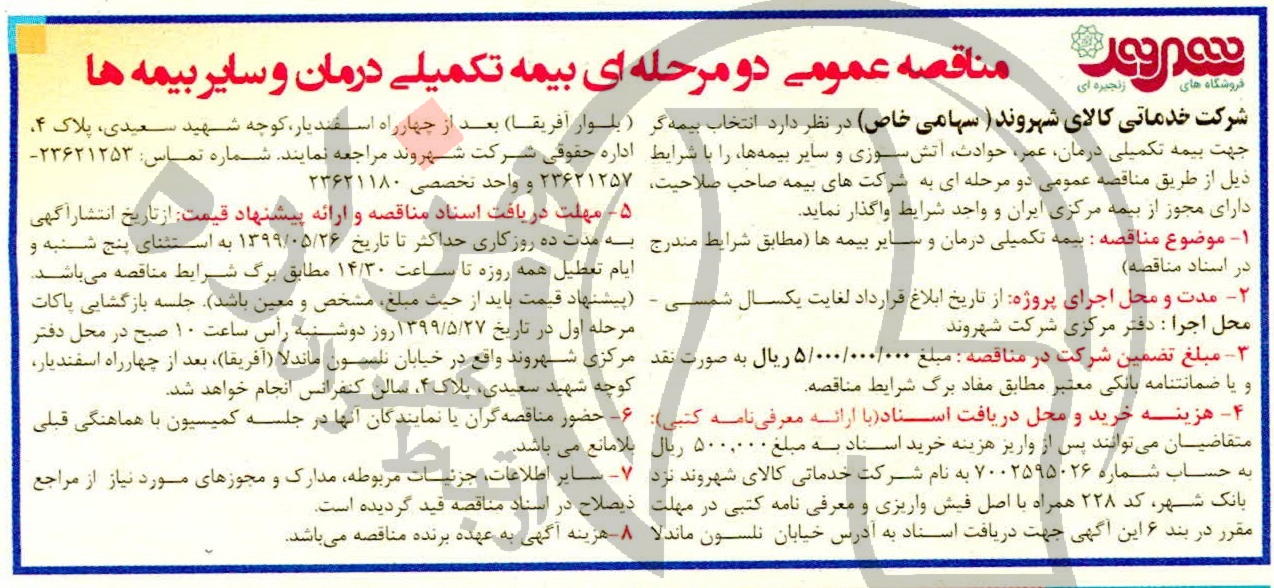 شهروند
فروشگاه های زنجیره ای
مناقصه عمومی دو مرحله ای بیمه تکمیلی درمان و سایر بیمه ها
شرکت خدماتی کالای شهروند (سهامی خاص) در نظر دارد انتخاب بیمه‌گر
جهت بیمه تکمیلی درمان، عمر، حوادث، آتش‌سوزی و سایر بیمه‌ها، را با شرایط
ذیل از طریق مناقصه عمومی دو مرحله ای به شرکت های بیمه صاحب صلاحیت،
دارای مجوز از بیمه مرکزی ایران و واجد شرایط واگذار نماید.
۱- موضوع مناقصه : بیمه تکمیلی درمان و سایر بیمه ها (مطابق شرایط مندرج
در اسناد مناقصه)
۲- مدت و محل اجرای پروژه: از تاریخ ابلاغ قرارداد لغایت یکسال شمسی -
محل اجرا : دفتر مرکزی شرکت شهروند
۳- مبلغ تضمین شرکت در مناقصه : مبلغ ۵/۰۰۰/۰۰۰/۰۰۰ ریال به صورت نقد
و یا ضمانتنامه بانکی معتبر مطابق مفاد برگ شرایط مناقصه.
۴- هزینه خرید و محل دریافت اسناد(با ارائه معرفی‌نامه کتبی):
متقاضیان می‌توانند پس از واریز هزینه خرید اسناد به مبلغ ۵۰۰,۰۰۰ ریال
به حساب شماره ۷۰۰۲۵۹۵۰۲۶ به نام شرکت خدماتی کالای شهروند نزد
بانک شهر، کد ۲۲۸ همراه با اصل فیش واریزی و معرفی نامه کتبی در مهلت
مقرر در بند ۶ این آگهی جهت دریافت اسناد به آدرس خیابان نلسون ماندلا
(بلوار آفریقا) بعد از چهارراه اسفندیار،کوچه شهید سعیدی، پلاک ۴،
اداره حقوقی شرکت شهروند مراجعه نمایند. شماره تماس: ۲۳۶۲۱۲۵۳-
۲۳۶۲۱۲۵۷ و واحد تخصصی ۲۳۶۲۱۱۸۰
۵- مهلت دریافت اسناد مناقصه و ارائه پیشنهاد قیمت: ازتاریخ انتشارآگهی
به مدت ده روزکاری حداکثر تا تاریخ ۱۳۹۹/۰۵/۲۶ به استثنای پنج شنبه و
ایام تعطیل همه روزه تا ساعت ۱۴/۳۰ مطابق برگ شرایط مناقصه می‌باشد.
(پیشنهاد قیمت باید از حیث مبلغ، مشخص و معین باشد). جلسه بازگشایی پاکات
مرحله اول در تاریخ ۱۳۹۹/۵/۲۷روز دوشنبه رأس ساعت ۱۰ صبح در محل دفتر
مرکزی شهروند واقع در خیابان نلسون ماندلا (آفریقا)، بعد از چهارراه اسفندیار،
کوچه شهید سعیدی، پلاک۴، سالن کنفرانس انجام خواهد شد.
۶- حضور مناقصه‌گران یا نمایندگان آنها در جلسه کمیسیون با هماهنگی قبلی
بلامانع می باشد.
۷- سایر اطلاعات، جزئیات مربوطه، مدارک و مجوزهای مورد نیاز از مراجع
ذیصلاح در اسناد مناقصه قید گردیده است.
۸-هزینه آگهی به عهده برنده مناقصه می‌باشد.